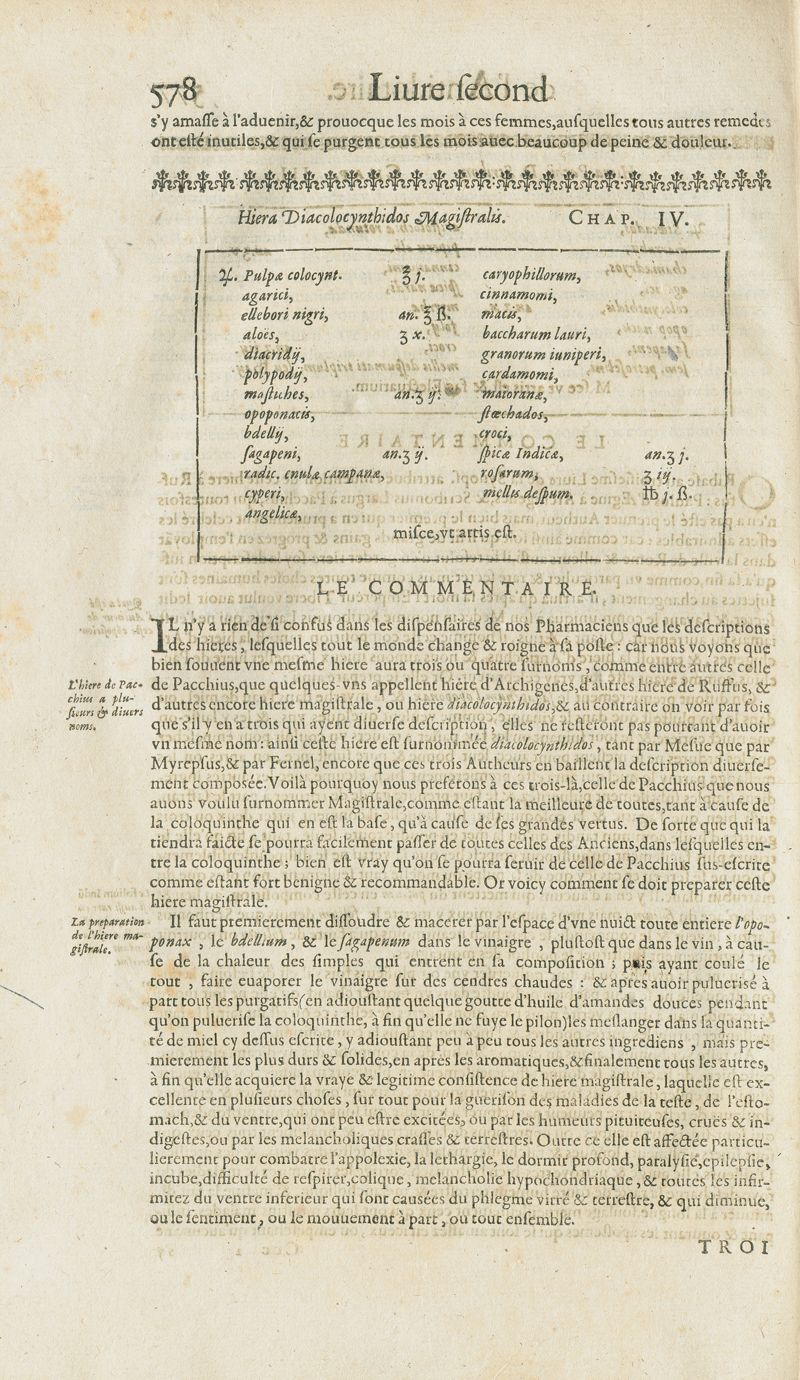 578 Liure ſecond
s'y amaſſe à l'aduenir,& prouocque les mois à ces femmes,auſquelles tous autres remedes
ont eſté inutiles,& qui ſe purgent tous les mois auec beaucoup de peine & douleur.
Hiera Diacolocynthidos Magiſtralis. CHAP. IV.
℞. Pulpæ colocynt. ℥ j. caryophillorum,
agarici, cinnamomi,
ellebori nigri, an. ℥ ß. macis,
aloës, ʒ x. baccharum lauri,
diacridij, granorum iuniperi,
polypodij, cardamomi,
maſtiches, an.ʒ ij. maioranæ,
opoponacis, ſtœchados,
bdellij, croci,
ſagapeni, an.ʒ ij. ſpicæ Indicæ, an.ʒ j.
radic. enulæ campanæ, roſarum, ʒ iij.
cyperi, mellis deſpum. ℔ j. ß.
angelicæ,
miſce,vt artis eſt.
LE COMMENTAIRE.
IL n'y a rien de ſi confus dans les diſpenſaires de nos Pharmaciens que les deſcriptions
des hieres, leſquelles tout le monde change & roigne à ſa poſte : car nous voyons que
bien ſouuent vne meſme hiere aura trois ou quatre ſurnoms, comme entre autres celle
L'hiere de Pac-
chius a plu-
ſieurs & diuers
noms.
de Pacchius,que quelques-vns appellent hiere d'Archigenes,d'autres hiere de Ruffus, &
d'autres encore hiere magiſtrale, ou hiere diacolocynthidos,& au contraire on voir par fois
que s'il y en a trois qui ayent diuerſe deſcription, elles ne reſteront pas pourtant d'auoir
vn meſme nom : ainſi ceſte hiere eſt ſurnommée diacolocynthidos, tant par Meſue que par
Myrepſus,& par Fernel, encore que ces trois Autheurs en baillent la deſcription diuerſe-
ment compoſée.Voilà pourquoy nous preferons à ces trois-là,celle de Pacchius que nous
auons voulu ſurnommer Magiſtrale,comme eſtant la meilleure de toutes,tant à cauſe de
la coloquinthe qui en eſt la baſe, qu'à cauſe de ſes grandes vertus. De ſorte que qui la
tiendra faicte ſe pourra facilement paſſer de toutes celles des Anciens,dans leſquelles en-
tre la coloquinthe ; bien eſt vray qu'on ſe pourra ſeruir de celle de Pacchius ſus-eſcrite
comme eſtant fort benigne & recommandable. Or voicy comment ſe doit preparer ceſte
hiere magiſtrale.
La preparation
de l'hiere ma-
giſtrale.
Il faut premierement diſſoudre & macerer par l'eſpace d'vne nuict toute entiere l'opo-
ponax, le bdellium, & le ſagapenum dans le vinaigre, pluſtoſt que dans le vin, à cau-
ſe de la chaleur des ſimples qui entrent en ſa compoſition ; puis ayant coulé le
tout, faire euaporer le vinaigre ſur des cendres chaudes : & apres auoir puluerisé à
part tous les purgatifs(en adiouſtant quelque goutte d'huile d'amandes douces pendant
qu'on puluerise la coloquinthe, à fin qu'elle ne fuye le pilon)les meſlanger dans la quanti-
té de miel cy deſſus eſcrite, y adiouſtant peu à peu tous les autres ingrediens, mais pre-
mierement les plus durs & ſolides,en apres les aromatiques,& finalement tous les autres,
à fin qu'elle acquiere la vraye & legitime conſiſtence de hiere magiſtrale, laquelle eſt ex-
cellente en pluſieurs choſes, ſur tout pour la gueriſon des maladies de la teſte, de l'eſto-
mach,& du ventre,qui ont peu eſtre excitées, ou par les humeurs pituiteuſes, cruës & in-
digeſtes,ou par les melancholiques craſſes & terreſtres. Outre ce elle eſt affectée particu-
lierement pour combatre l'appolexie, la lethargie, le dormir profond, paralyſie,epilepſie,
incube,difficulté de reſpirer,colique, melancholie hypochondriaque, & toutes les infir-
mitez du ventre inferieur qui ſont causées du phlegme vitré & terreſtre, & qui diminue,
ou le ſentiment, ou le mouuement à part, ou tout enſemble.
TROI